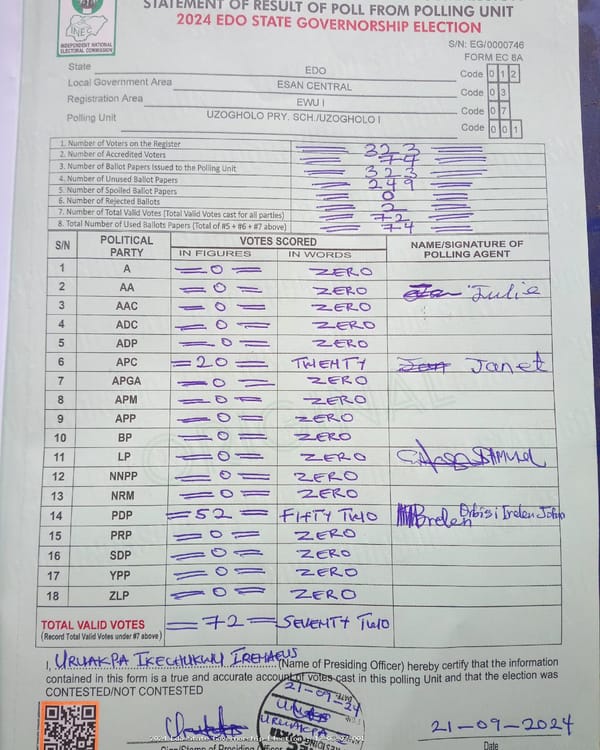 STATEMENT OF RESULT OF POLL FROM POLLING UNIT
2024 EDO STATE GOVERNORSHIP ELECTION
INEC
INDEPENDENT NATIONAL
ELECTORAL COMMISSION
S/N: EG/0000746
FORM EC 8A
State EDO Code 0 1 2
Local Government Area ESAN CENTRAL Code 0 3
Registration Area EWU I Code 0 7
Polling Unit UZOGHOLO PRY. SCH./UZOGHOLO I Code 0 0 1
1. Number of Voters on the Register 323
2. Number of Accredited Voters 74
3. Number of Ballot Papers Issued to the Polling Unit 323
4. Number of Unused Ballot Papers 249
5. Number of Spoiled Ballot Papers 0
6. Number of Rejected Ballots 2
7. Number of Total Valid Votes (Total Valid Votes cast for all parties) 72
8. Total Number of Used Ballots Papers (Total of #5 + #6 + #7 above) 74
S/N POLITICAL PARTY VOTES SCORED NAME/SIGNATURE OF POLLING AGENT
IN FIGURES IN WORDS
1 A =0= ZERO
2 AA =0= ZERO Julie
3 AAC =0= ZERO
4 ADC =0= ZERO
5 ADP =0= ZERO
6 APC =20= TWENTY Janet
7 APGA =0= ZERO
8 APM =0= ZERO
9 APP =0= ZERO
10 BP =0= ZERO
11 LP =0= ZERO
12 NNPP =0= ZERO
13 NRM =0= ZERO
14 PDP =52= FIFTY TWO Orbisi Irelen John
15 PRP =0= ZERO
16 SDP =0= ZERO
17 YPP =0= ZERO
18 ZLP =0= ZERO
TOTAL VALID VOTES =72= SEVENTY TWO
(Record Total Valid Votes under #7 above)
I, URUAKPA IKECHUKWU IREHAEUS (Name of Presiding Officer) hereby certify that the information
contained in this form is a true and accurate account of votes cast in this polling Unit and that the election was
CONTESTED/NOT CONTESTED
21-09-24
URUAKPA
21-09-2024
Date